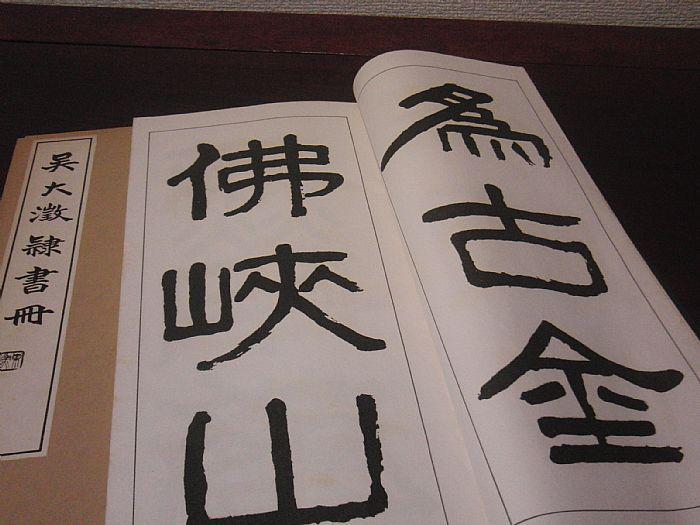 為古金
佛峽山
吴大澂隸書冊